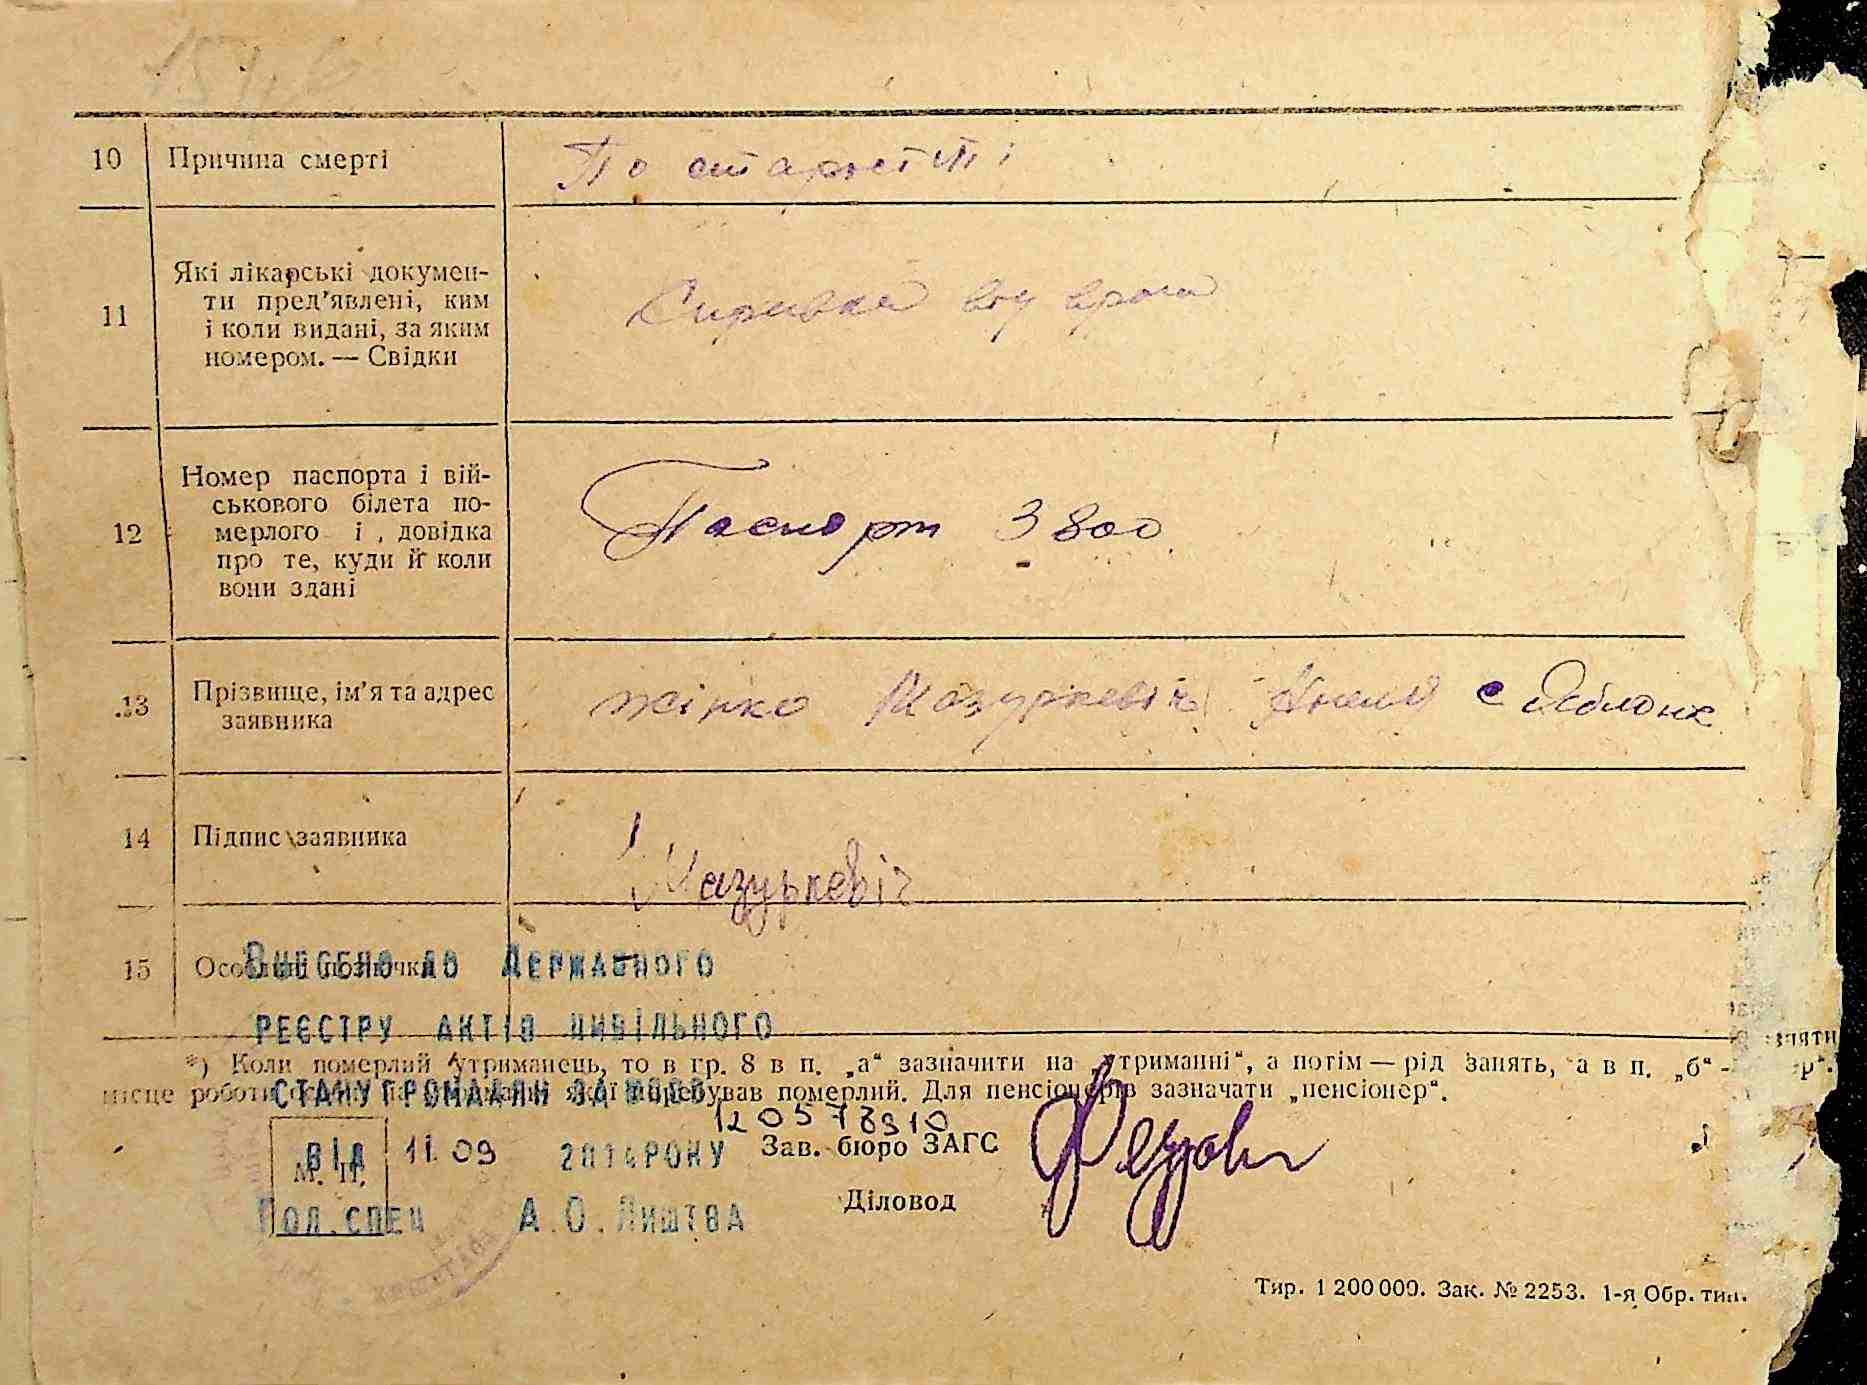 10 Причина смерті По старості
11 Які лікарські докумен-
ти пред'явлені, ким
і коли видані, за яким
номером. — Свідки
Справка від врача
12 Номер паспорта і вій-
ськового білета по-
мерлого і, довідка
про те, куди й коли
вони здані
Паспорт 3800
13 Прізвище, ім'я та адрес
заявника
жінка Мазуркевіч с Яблоне
14 Підпис заявника
Мазуркевіч
15 Особливі позначки
Внесено до Державного
реєстру актів цивільного
*) Коли померлий утриманець, то в гр. 8 в п. „а" зазначити на „утриманні", а потім — рід занять, а в п. „б" -
місце роботи якої перебував померлий. Для пенсіонерів зазначати „пенсіонер".
стану громадян за №
120578910
М. П.
від 11.09 2014 року
Зав. бюро ЗАГС
Діловод
Пол. спец А.О. Лиштва
Тир. 1 200 000. Зак. № 2253. 1-я Обр. тип.